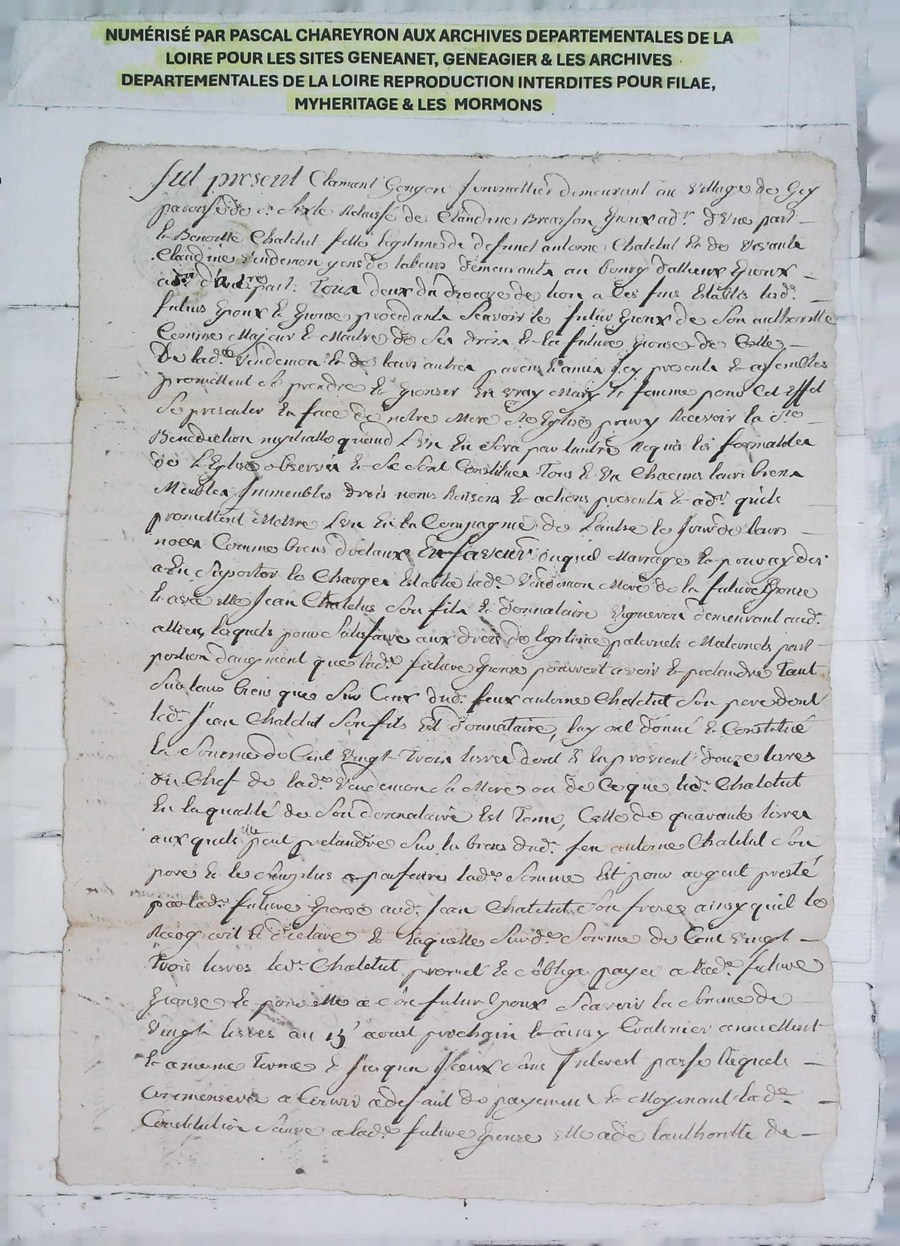 NUMÉRISÉ PAR PASCAL CHAREYRON AUX ARCHIVES DEPARTEMENTALES DE LA
LOIRE POUR LES SITES GENEANET, GENEAGIER & LES ARCHIVES
DEPARTEMENTALES DE LA LOIRE REPRODUCTION INTERDITES POUR FILAE,
MYHERITAGE & LES MORMONS
fut present Clamant demeurant au village de
de Claudine Espoux ad. d'Une part
Et Benoitte Chalelut fille legitime de deffunct antoine Chalelut Et de
Claudine Vendemon gens de labeur demeurants au bourg d'allieux Epoux
part. Tous deux du de lion a Ces fins Establis
futurs Epoux Et Epouse procedants Scavoir le futur Epoux de Son authoritte
Comme Majeur Et Maitre de Ses droits Et la future Epouse de Celle
De lad.e Vendemon Et de leurs autres parens Et amis Icy presents Et assemblés
promettent se prendre Et Epouser En vray Mary Et femme pour Cet Effet
Se presenter En face de notre Mere Ste Eglise pour y Recevoir la Ste
Benediction nuptialle quand l'un En Sera par l'autre Requis les formalites
de L'Eglise observées Et Se Sont Constitués Tous Et Un Chacuns leurs biens
Meubles Immeubles droits noms Raisons Et actions presents Et adv. qu'ils
promettent Mettre l'un En la Compagnie de l'autre le Jour de leurs
noces Comme biens dotaux En faveur duquel Marriage Et pour ayder
a En Suporter les Charges Establie lad.e Vendemon Mere de la future Epouse
Et avec elle Jean Chalelus Son fils Et donnataire Vigneron demeurant aud.
allieu, lesquels pour Satisfaire aux droits de legitime paternels Maternels
portion d'augment que lad.e future Epouse pourroit avoir Et pretandre Tant
Sur leurs biens que Sur Ceux dud. feux antoine Chalelut Son pere dont
led. Jean Chalelut Son fils Est donnataire, luy ont donné Et Constitué
la Somme de Cent Vingt Trois livres dont Il En provient douze livres
du Chef de lad.e Vendemon la Mere ou de Ce que led. Chalelut
En la qualité de Son donnataire Est Tenu, Celle de quarante livres
aux quels elle peut pretandre Sur les biens dud. feu antoine Chalelut Son
pere Et le Surplus a parfaire lad.e Somme Est pour argent presté
par lad.e future Epouse aud. Jean Chalelut Son frere ainsy quil le
Recognoit Et declare Et laquelle Sur de Somme de Cent Vingt
Trois livres led. Chalelut promet Et S'oblige payer a lad.e future
Epouse Et pour elle a Son futur Epoux Scavoir la Somme de
Vingt livres au 15e aoust prochain Et ainsy Continuer annuellement
Et a meme Terme Jusqua Sans Interest passé lequels
Commenceront a Courir a defaut de payement Et Moyenant lad.e
Constitution a lad.e future Epouse Elle a de l'authoritte de